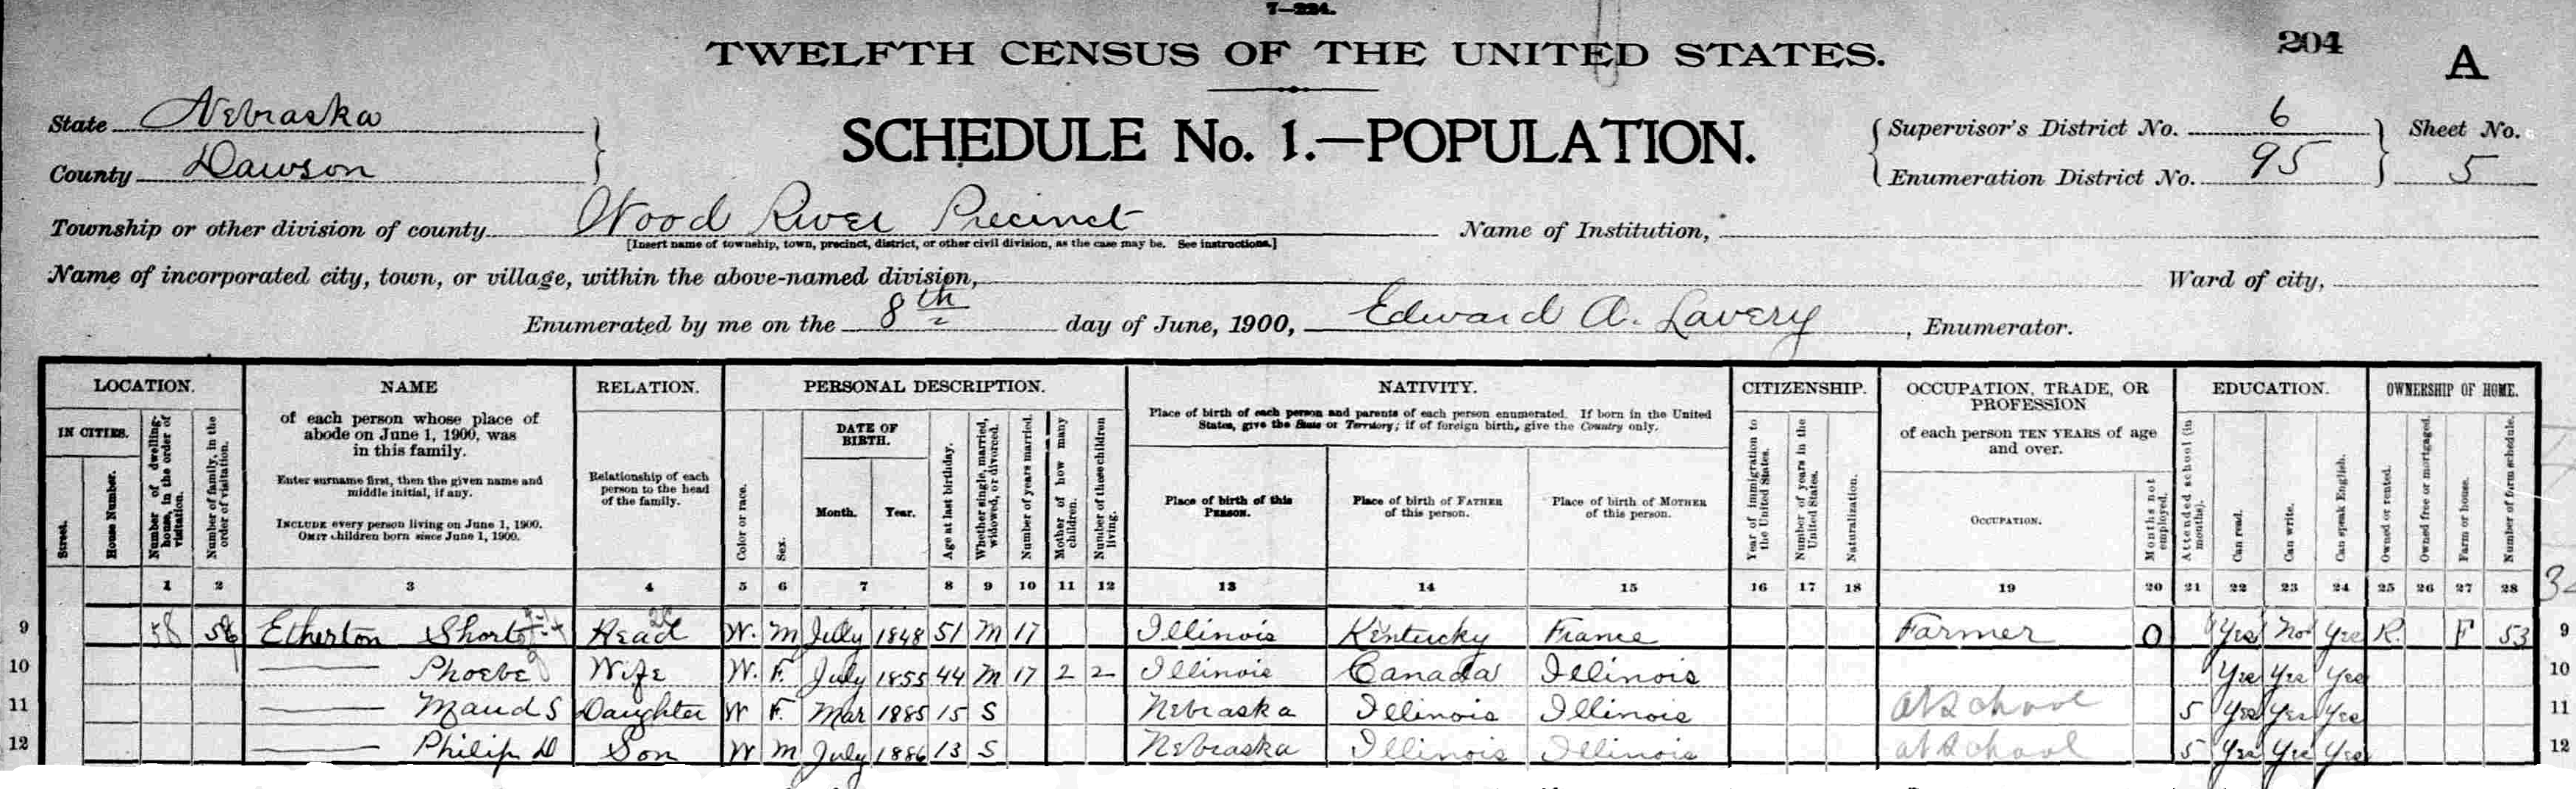 7—224.
TWELFTH CENSUS OF THE UNITED STATES.
204
A
State Nebraska
County Dawson
SCHEDULE No. 1.—POPULATION.
Supervisor's District No. 6
Enumeration District No. 95
Sheet No.
5
Township or other division of county Wood River Precinct
[Insert name of township, town, precinct, district, or other civil division, as the case may be. See instructions.]
Name of Institution,
Name of incorporated city, town, or village, within the above-named division,
Ward of city,
Enumerated by me on the 8th day of June, 1900, Edward A. Lavery, Enumerator.
LOCATION.
IN CITIES.
Street.
House Number.
Number of dwelling-house, in the order of visitation.
Number of family, in the order of visitation.
NAME
of each person whose place of
abode on June 1, 1900, was
in this family.
Enter surname first, then the given name and
middle initial, if any.
INCLUDE every person living on June 1, 1900.
OMIT children born since June 1, 1900.
RELATION.
Relationship of each
person to the head
of the family.
PERSONAL DESCRIPTION.
Color or race.
Sex.
DATE OF
BIRTH.
Month.
Year.
Age at last birthday.
Whether single, married, widowed, or divorced.
Number of years married.
Mother of how many children.
Number of these children living.
NATIVITY.
Place of birth of each person and parents of each person enumerated. If born in the United
States, give the State or Territory; if of foreign birth, give the Country only.
Place of birth of this
PERSON.
Place of birth of FATHER
of this person.
Place of birth of MOTHER
of this person.
CITIZENSHIP.
Year of immigration to the United States.
Number of years in the United States.
Naturalization.
OCCUPATION, TRADE, OR
PROFESSION
of each person TEN YEARS of age
and over.
OCCUPATION.
Months not employed.
EDUCATION.
Attended school (in months).
Can read.
Can write.
Can speak English.
OWNERSHIP OF HOME.
Owned or rented.
Owned free or mortgaged.
Farm or house.
Number of farm schedule.
1 2 3 4 5 6 7 8 9 10 11 12 13 14 15 16 17 18 19 20 21 22 23 24 25 26 27 28
9 58 Etherton Short Head W. M July 1848 51 M 17 Illinois Kentucky France Farmer 0 Yes No Yes R. F 53 9
10 Phoebe Wife W. F. July 1855 44 M 17 2 2 Illinois Canada Illinois Yes Yes Yes 10
11 Maud S Daughter W F. Mar 1885 15 S Nebraska Illinois Illinois at School 5 Yes Yes Yes 11
12 Philip D Son W M July 1886 13 S Nebraska Illinois Illinois at School 5 Yes Yes Yes 12